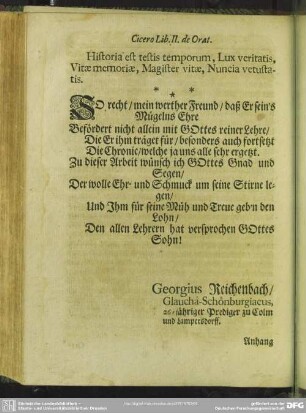 Cicero Lib. II. de Orat.
Historia est testis temporum, Lux veritatis,
Vitæ memoriæ, Magister vitæ, Nuncia vetusta-
tis.
* * *
SO recht / mein werther Freund / daß Er sein's
Mügelns Ehre
Befördert nicht allein mit GOttes reiner Lehre /
Die Er ihm träget für / besonders auch fortsetzt
Die Chronic / welche ja uns alle sehr ergetzt.
Zu dieser Arbeit wünsch ich GOttes Gnad und
Segen /
Der wolle Ehr- und Schmuck um seine Stirne le-
gen /
Und Ihm für seine Müh und Treue geb'n den
Lohn /
Den allen Lehrern hat versprochen GOttes
Sohn!
Georgius Reichenbach /
Glauchâ-Schönburgiacus,
jähriger Prediger zu Colm
und
Anhang